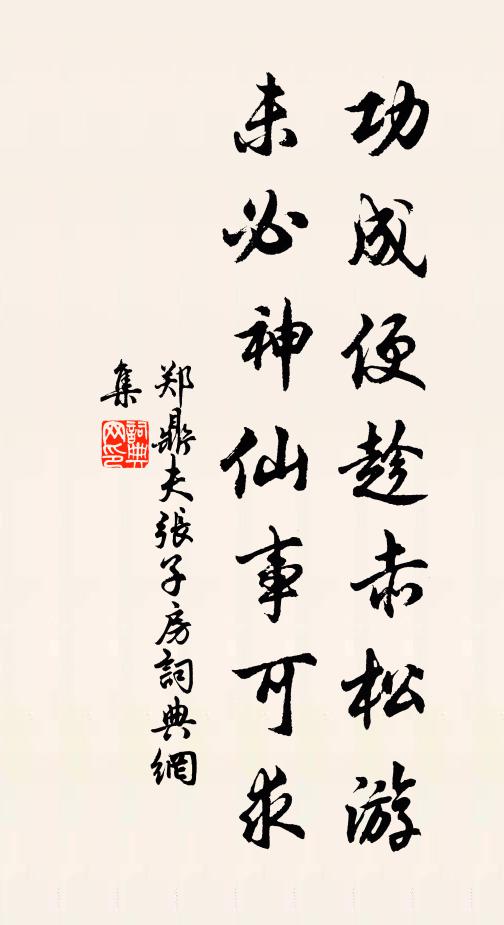 功成便趁赤松游
未必神仙事可求
郑鼎夫張子房詞典網
集
詞典网印